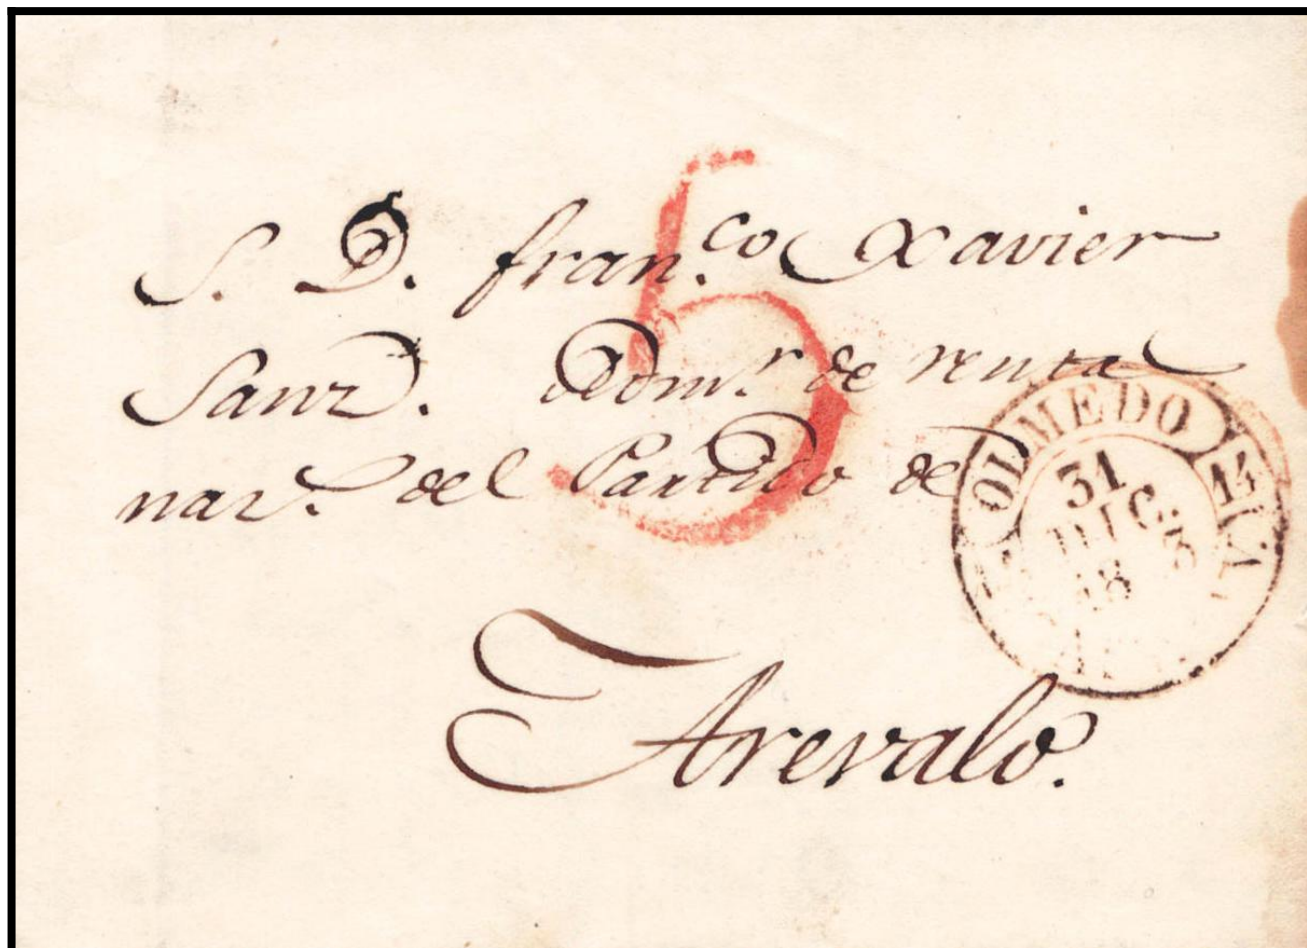 S. D. fran.co Xavier
5
Sanz. Adm.r de renta
nas. del Partido de
OLMEDO 14
31
DIC.
Arevalo.